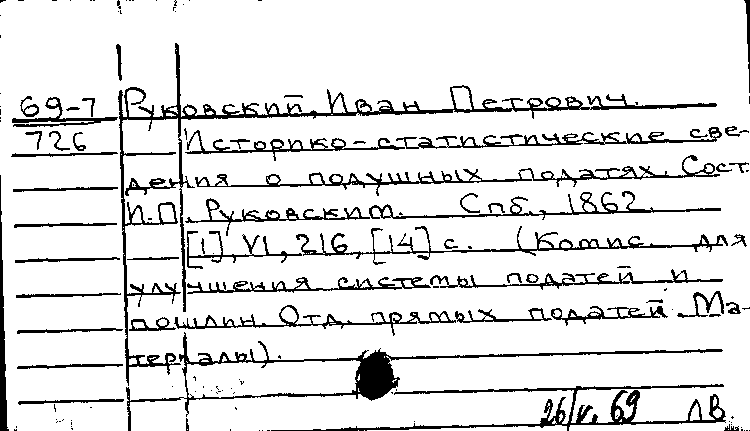 69-7 Руковский, Иван Петрович.
726 Историко-статистические све-
дения о подушных податях. Сост.
И.П. Руковским. Спб., 1862.
[1], VI, 216, [14] с. (Комис. для
улучшения системы податей и
пошлин. Отд. прямых податей. Ма-
териалы).
26/V. 69 ЛВ